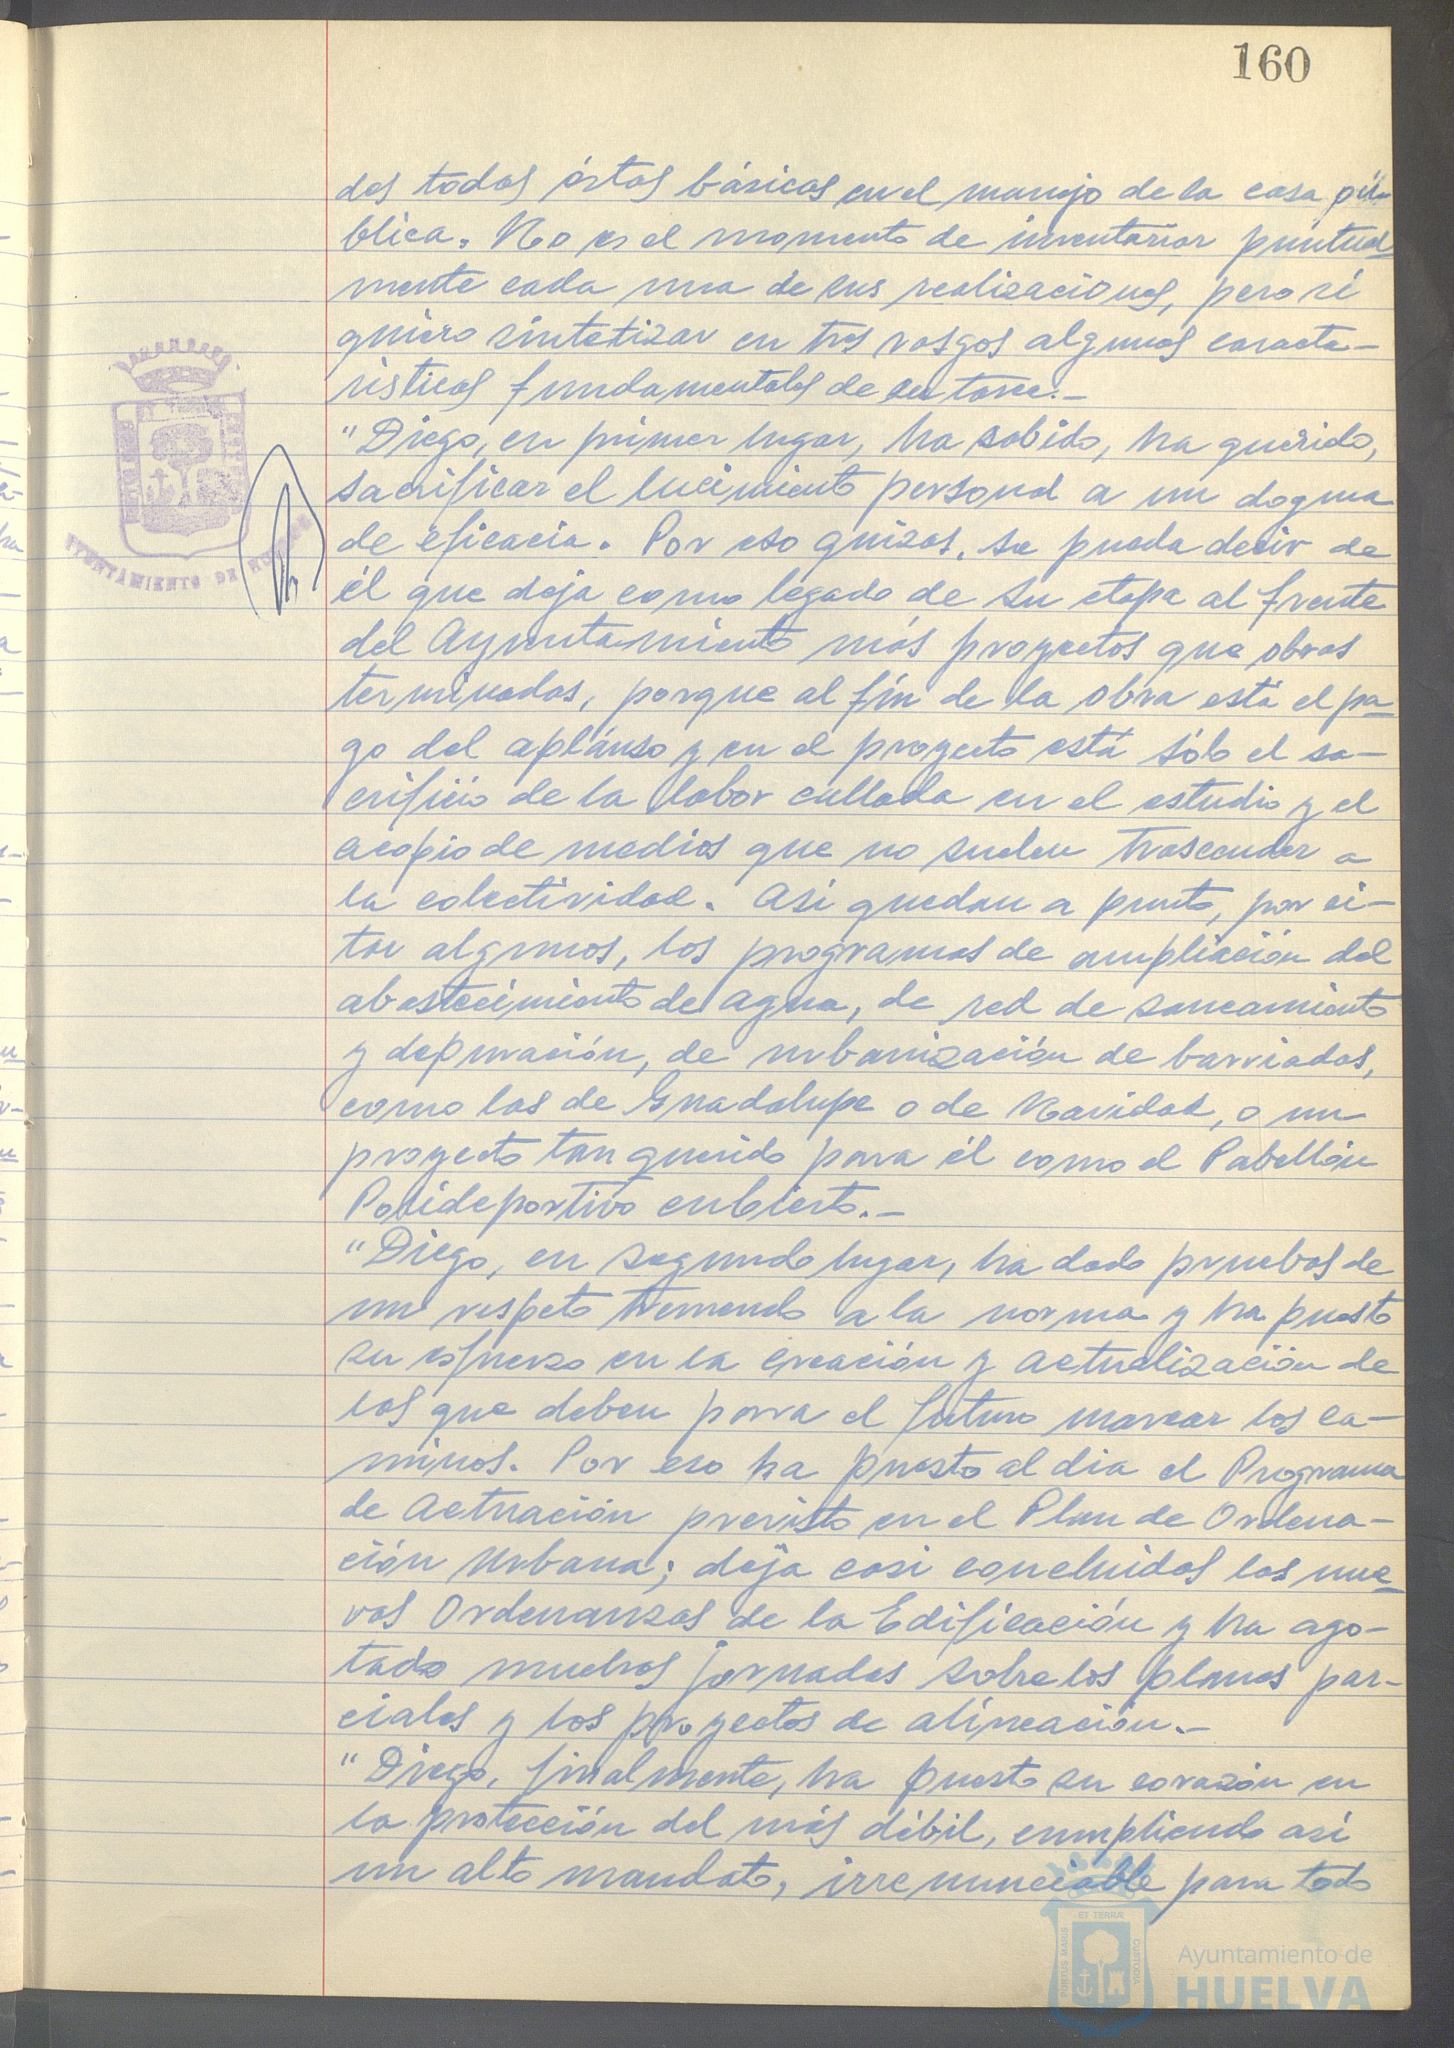 160
des todas éstas básicas en el manejo de la cosa pú-
blica. No es el momento de inventariar puntual
mente cada una de sus realizaciones, pero sí
quiero sintetizar en tres rasgos algunas caracte-
rísticas fundamentales de su tarea.-
"Diego, en primer lugar, ha sabido, ha querido,
sacrificar el lucimiento personal a un dogma
de eficacia. Por eso quizas, se pueda decir de
él que deja como legado de su etapa al frente
del Ayuntamiento más proyectos que obras
terminadas, porque al fin de la obra está el pa-
go del aplauso y en el proyecto está sólo el sa-
crificio de la labor callada en el estudio y el
acopio de medios que no suelen trascender a
la colectividad. Asi quedan a punto, por ci-
tar algunos, los programas de ampliación del
abastecimiento de agua, de red de saneamiento
y depuración, de urbanización de barriadas,
como las de Guadalupe o de Navidad, o un
proyecto tan querido para él como el Pabellón
Polideportivo cubierto.-
"Diego, en segundo lugar, ha dado pruebas de
un respeto tremendo a la norma y ha puesto
su esfuerzo en la creación y actualización de
las que deben para el futuro marcar los ca-
minos. Por eso ha puesto al dia el Programa
de Actuación previsto en el Plan de Ordena-
ción Urbana; deja casi concluidas las nue-
vas Ordenanzas de la Edificación y ha ago-
tado muchas jornadas sobre los planes par-
ciales y los proyectos de alineación.-
"Diego, finalmente, ha puesto su corazón en
la protección del más débil, cumpliendo así
un alto mandato, irrenunciable para todo
AYUNTAMIENTO DE HUELVA
PORTUS MARIS ET TERRAE CUSTODIA
Ayuntamiento de
HUELVA